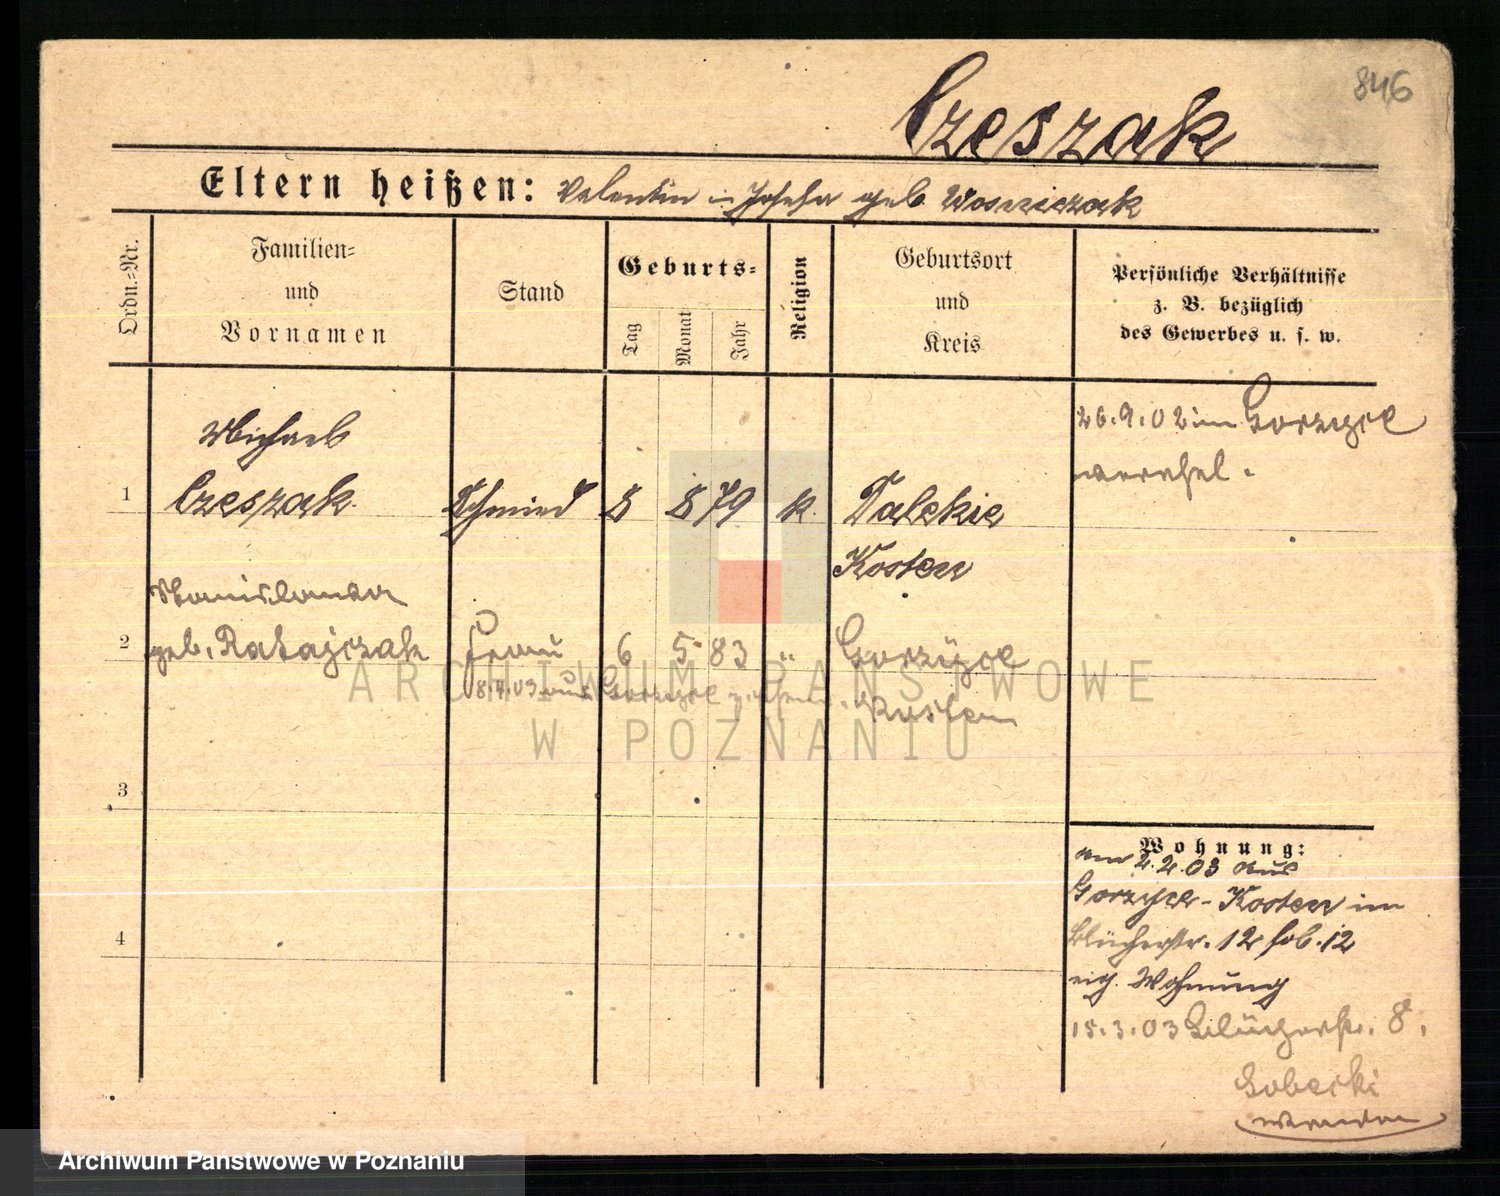 846
Czeszak
Eltern heißen: Valentin u Josefa geb Wosniczak
Ordn.=Nr.
Familien=
und
Vornamen
Stand
Geburts=
Tag
Monat
Jahr
Religion
Geburtsort
und
Kreis
Persönliche Verhältnisse
z. B. bezüglich
des Gewerbes u. s. w.
1
Michael
Czeszak.
Schmied
8
8
79
k.
Kosten
26.9.02 in Gorzyce
verehel.
2
Stanislawa
geb. Ratajczak
Frau
6
5
83
"
Gorzyce
Kosten
8.4.03 aus Gorzyce
3
4
Wohnung:
am 2.2.03 aus
Gorzyce - Kosten in
Blücherstr. 12
eig. Wohnung
15.3.03 Blücherstr. 8.
Sobecki
wenden
ARCHIWUM PAŃSTWOWE
W POZNANIU
Archiwum Państwowe w Poznaniu